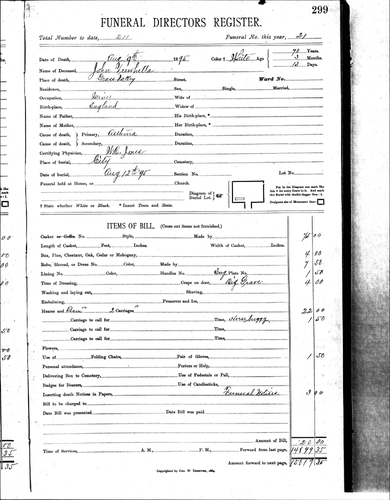 299
FUNERAL DIRECTORS REGISTER.
Total Number to date, 211 Funeral No. this year, 21
Date of Death, Aug 9th 1895 Color † White Age 70 Years.
Name of Deceased, John 3 Months
Place of death, Grass Valley Street, Ward No. 13 Days.
Residence, Sex, Single, Married,
Occupation, Miner Wife of
Birth-place, England Widow of
Name of Father, His Birth-place, *
Name of Mother, Her Birth-place, *
Cause of death, Primary, Asthma Duration,
Cause of death, Secondary, Duration,
Certifying Physician, Jones His Residence,
Place of burial, City Cemetery,
Date of burial, Aug 12th 95 Section No. Lot No.
Funeral held at Home, or Church.
Diagram of Lot or Vault
† State whether White or Black. * Insert Town and State.
Designate size of Monument thus
ITEMS OF BILL. (Cross out items not furnished.)
Casket or Coffin No. Style, Made by
Length of Casket, Feet, Inches. Width of Casket, Inches.
Box, Pine, Chestnut, Oak, Cedar or Mahogany, 4 00
Robe, Shroud, or Dress No. Color, Made by 7 50
Lining No. Color, Handles No. Eng Plate No. 1 50
Time of Dressing, Crape on door, Dig Grave 4 00
Washing and laying out, Shaving,
Embalming, Preserver and Ice,
Hearse and 2 Carriages 22 00
Carriage to call for Time, Horse buggy 1 50
Carriage to call for Time,
Carriage to call for Time,
Flowers,
Use of Folding Chairs, Pair of Gloves, 1 50
Personal attendance, Porters or Help,
Delivering Box to Cemetery, Use of Pedestals or Pall,
Badges for Bearers, Use of Candlesticks,
Inserting death Notices in Papers, Funeral Notices 3 00
Bill to be charged to
Date Bill was presented Date Bill was paid
Amount of Bill,
Time of Services, A. M., P. M., Forward from last page,
Amount forward to next page,